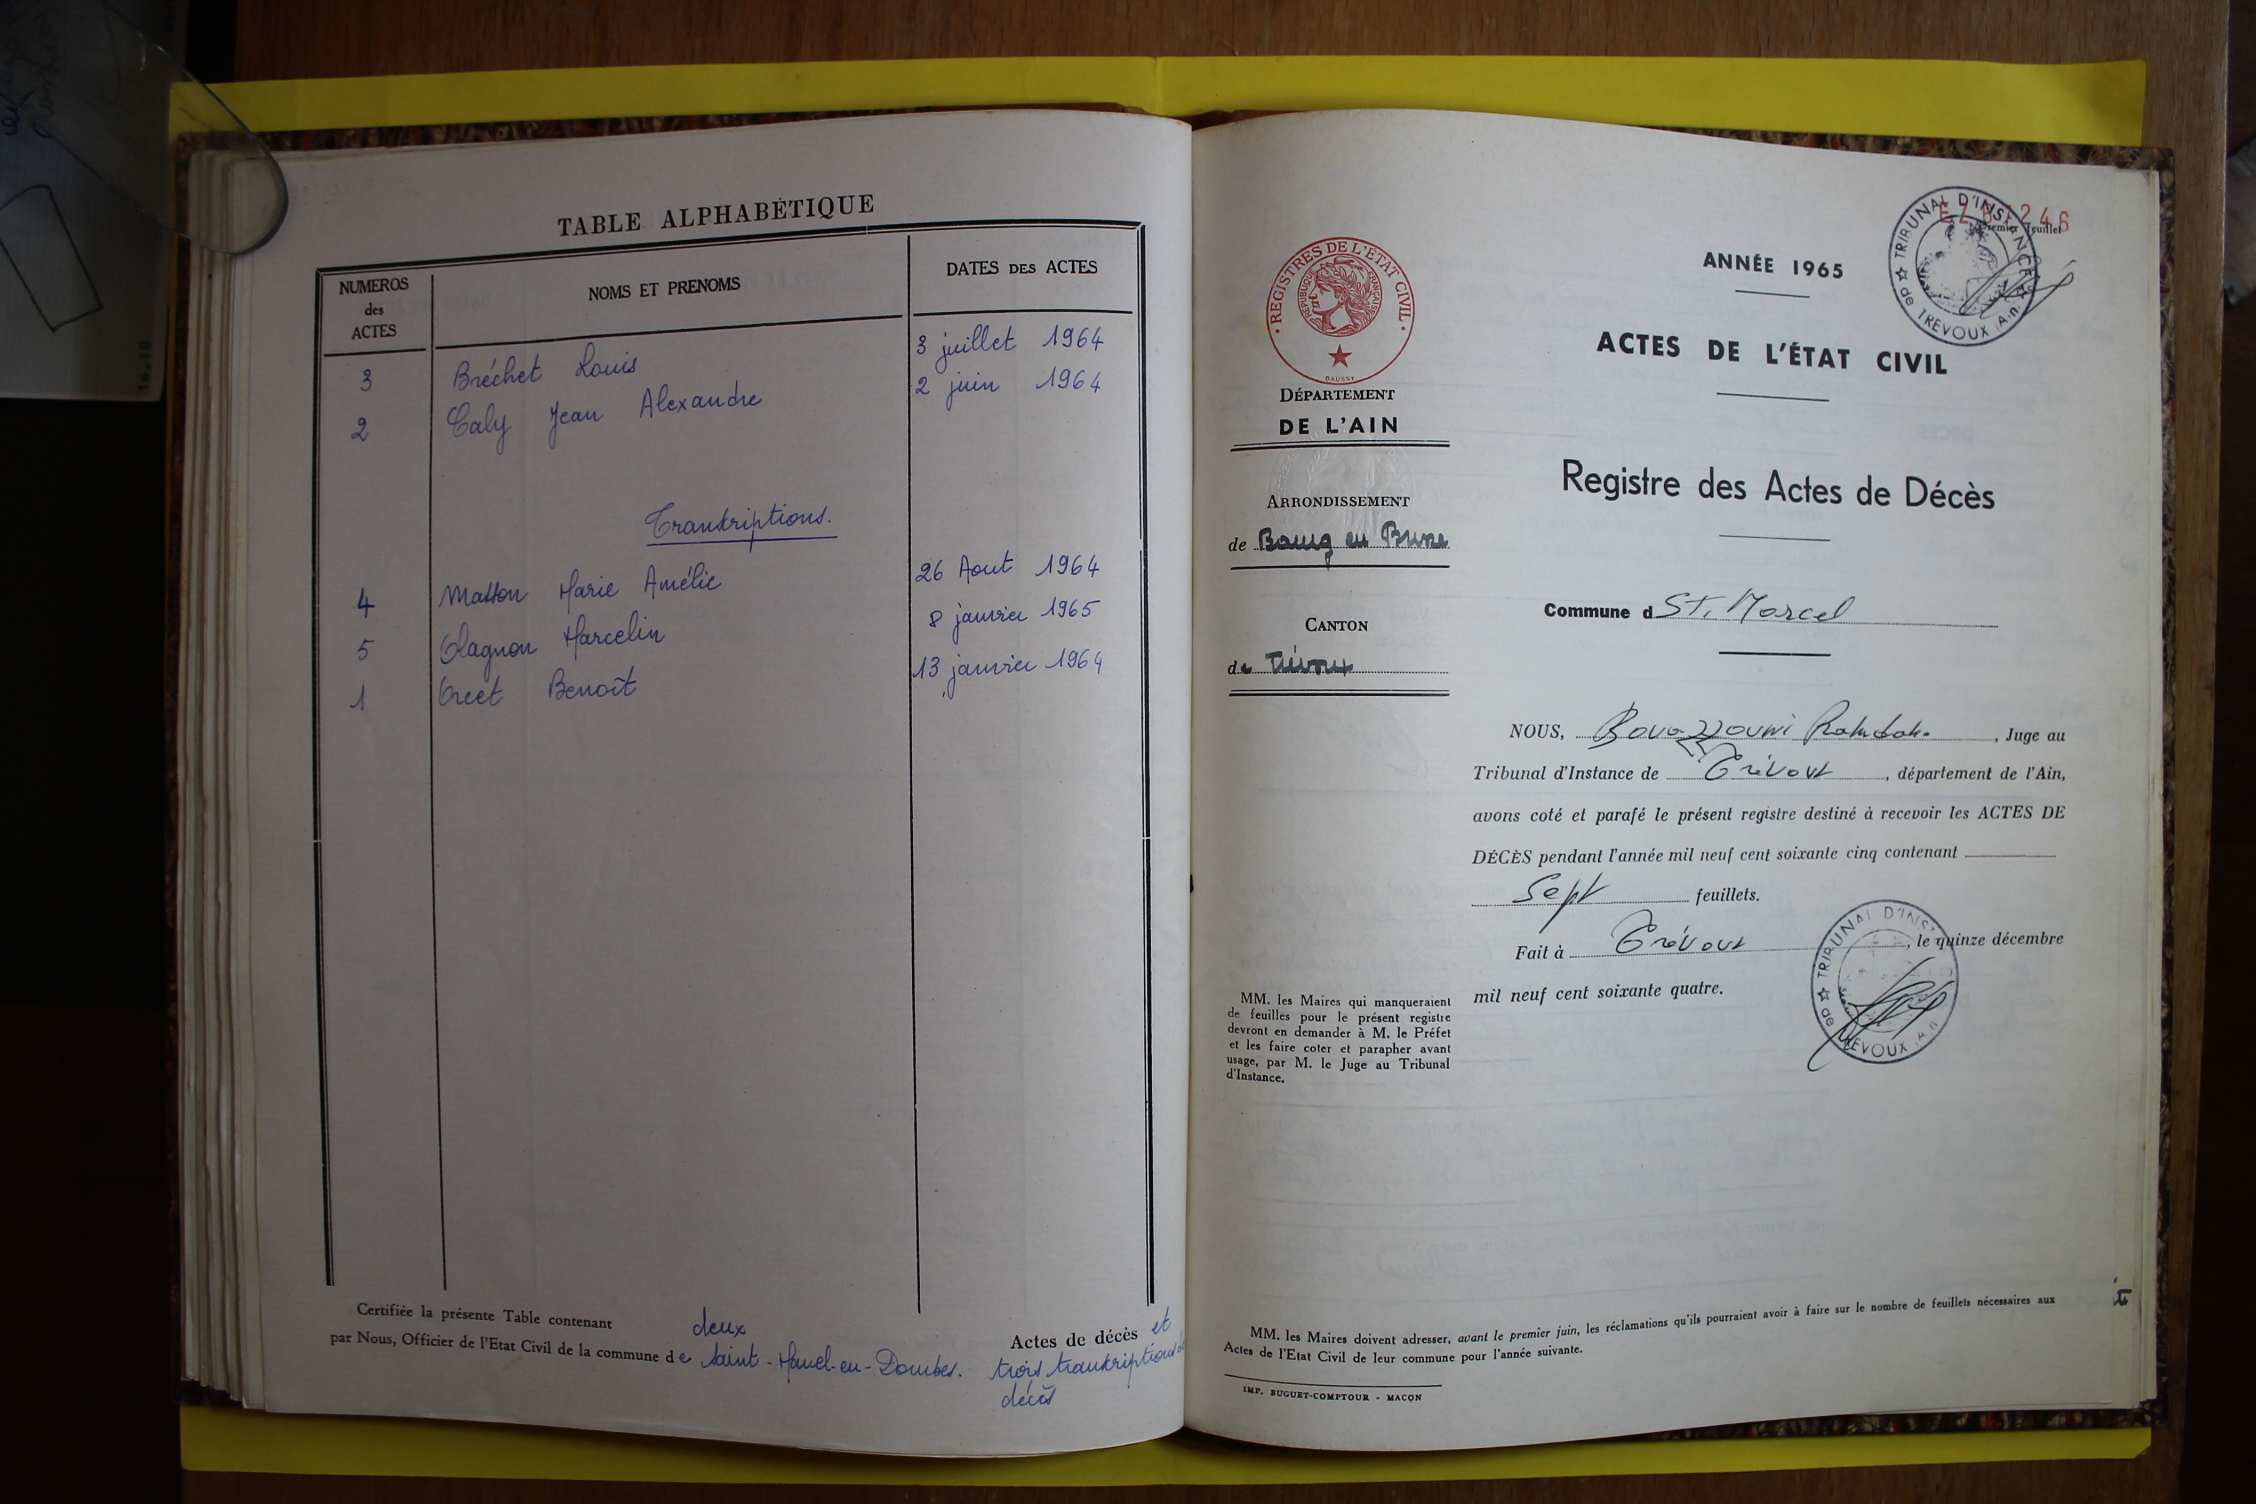 TABLE ALPHABÉTIQUE
NUMEROS
des
ACTES
NOMS ET PRENOMS
DATES DES ACTES
3 Bréchet Louis 3 juillet 1964
2 Caly Jean Alexandre 2 juin 1964
Transkriptions.
4 Masson Marie Amélie 26 Aout 1964
5 Olagnon Marcelin 8 janvier 1965
1 Orcet Benoît 13 janvier 1964
Certifiée la présente Table contenant deux Actes de décès et
par Nous, Officier de l'Etat Civil de la commune de Saint-Marcel-en-Dombes. trois transkriptions de
décès
Premier feuillet
TRIBUNAL D'INSTANCE
de TREVOUX (Ain)
REGISTRES DE L'ÉTAT CIVIL
RÉPUBLIQUE FRANÇAISE
DAUSSY
DÉPARTEMENT
DE L'AIN
ARRONDISSEMENT
de Bourg en Bresse
CANTON
de Trévoux
MM. les Maires qui manqueraient
de feuilles pour le présent registre
devront en demander à M. le Préfet
et les faire coter et parapher avant
usage, par M. le Juge au Tribunal
d'Instance.
ANNÉE 1965
ACTES DE L'ÉTAT CIVIL
Registre des Actes de Décès
Commune d St. Marcel
NOUS, Bouazzouni, Juge au
Tribunal d'Instance de Trévoux, département de l'Ain,
avons coté et parafé le présent registre destiné à recevoir les ACTES DE
DÉCÈS pendant l'année mil neuf cent soixante cinq contenant
Sept feuillets.
Fait à Trévoux, le quinze décembre
mil neuf cent soixante quatre.
TRIBUNAL D'INST
de TREVOUX
MM. les Maires doivent adresser, avant le premier juin, les réclamations qu'ils pourraient avoir à faire sur le nombre de feuillets nécessaires aux
Actes de l'Etat Civil de leur commune pour l'année suivante.
IMP. BUGUET-COMPTOUR - MACON